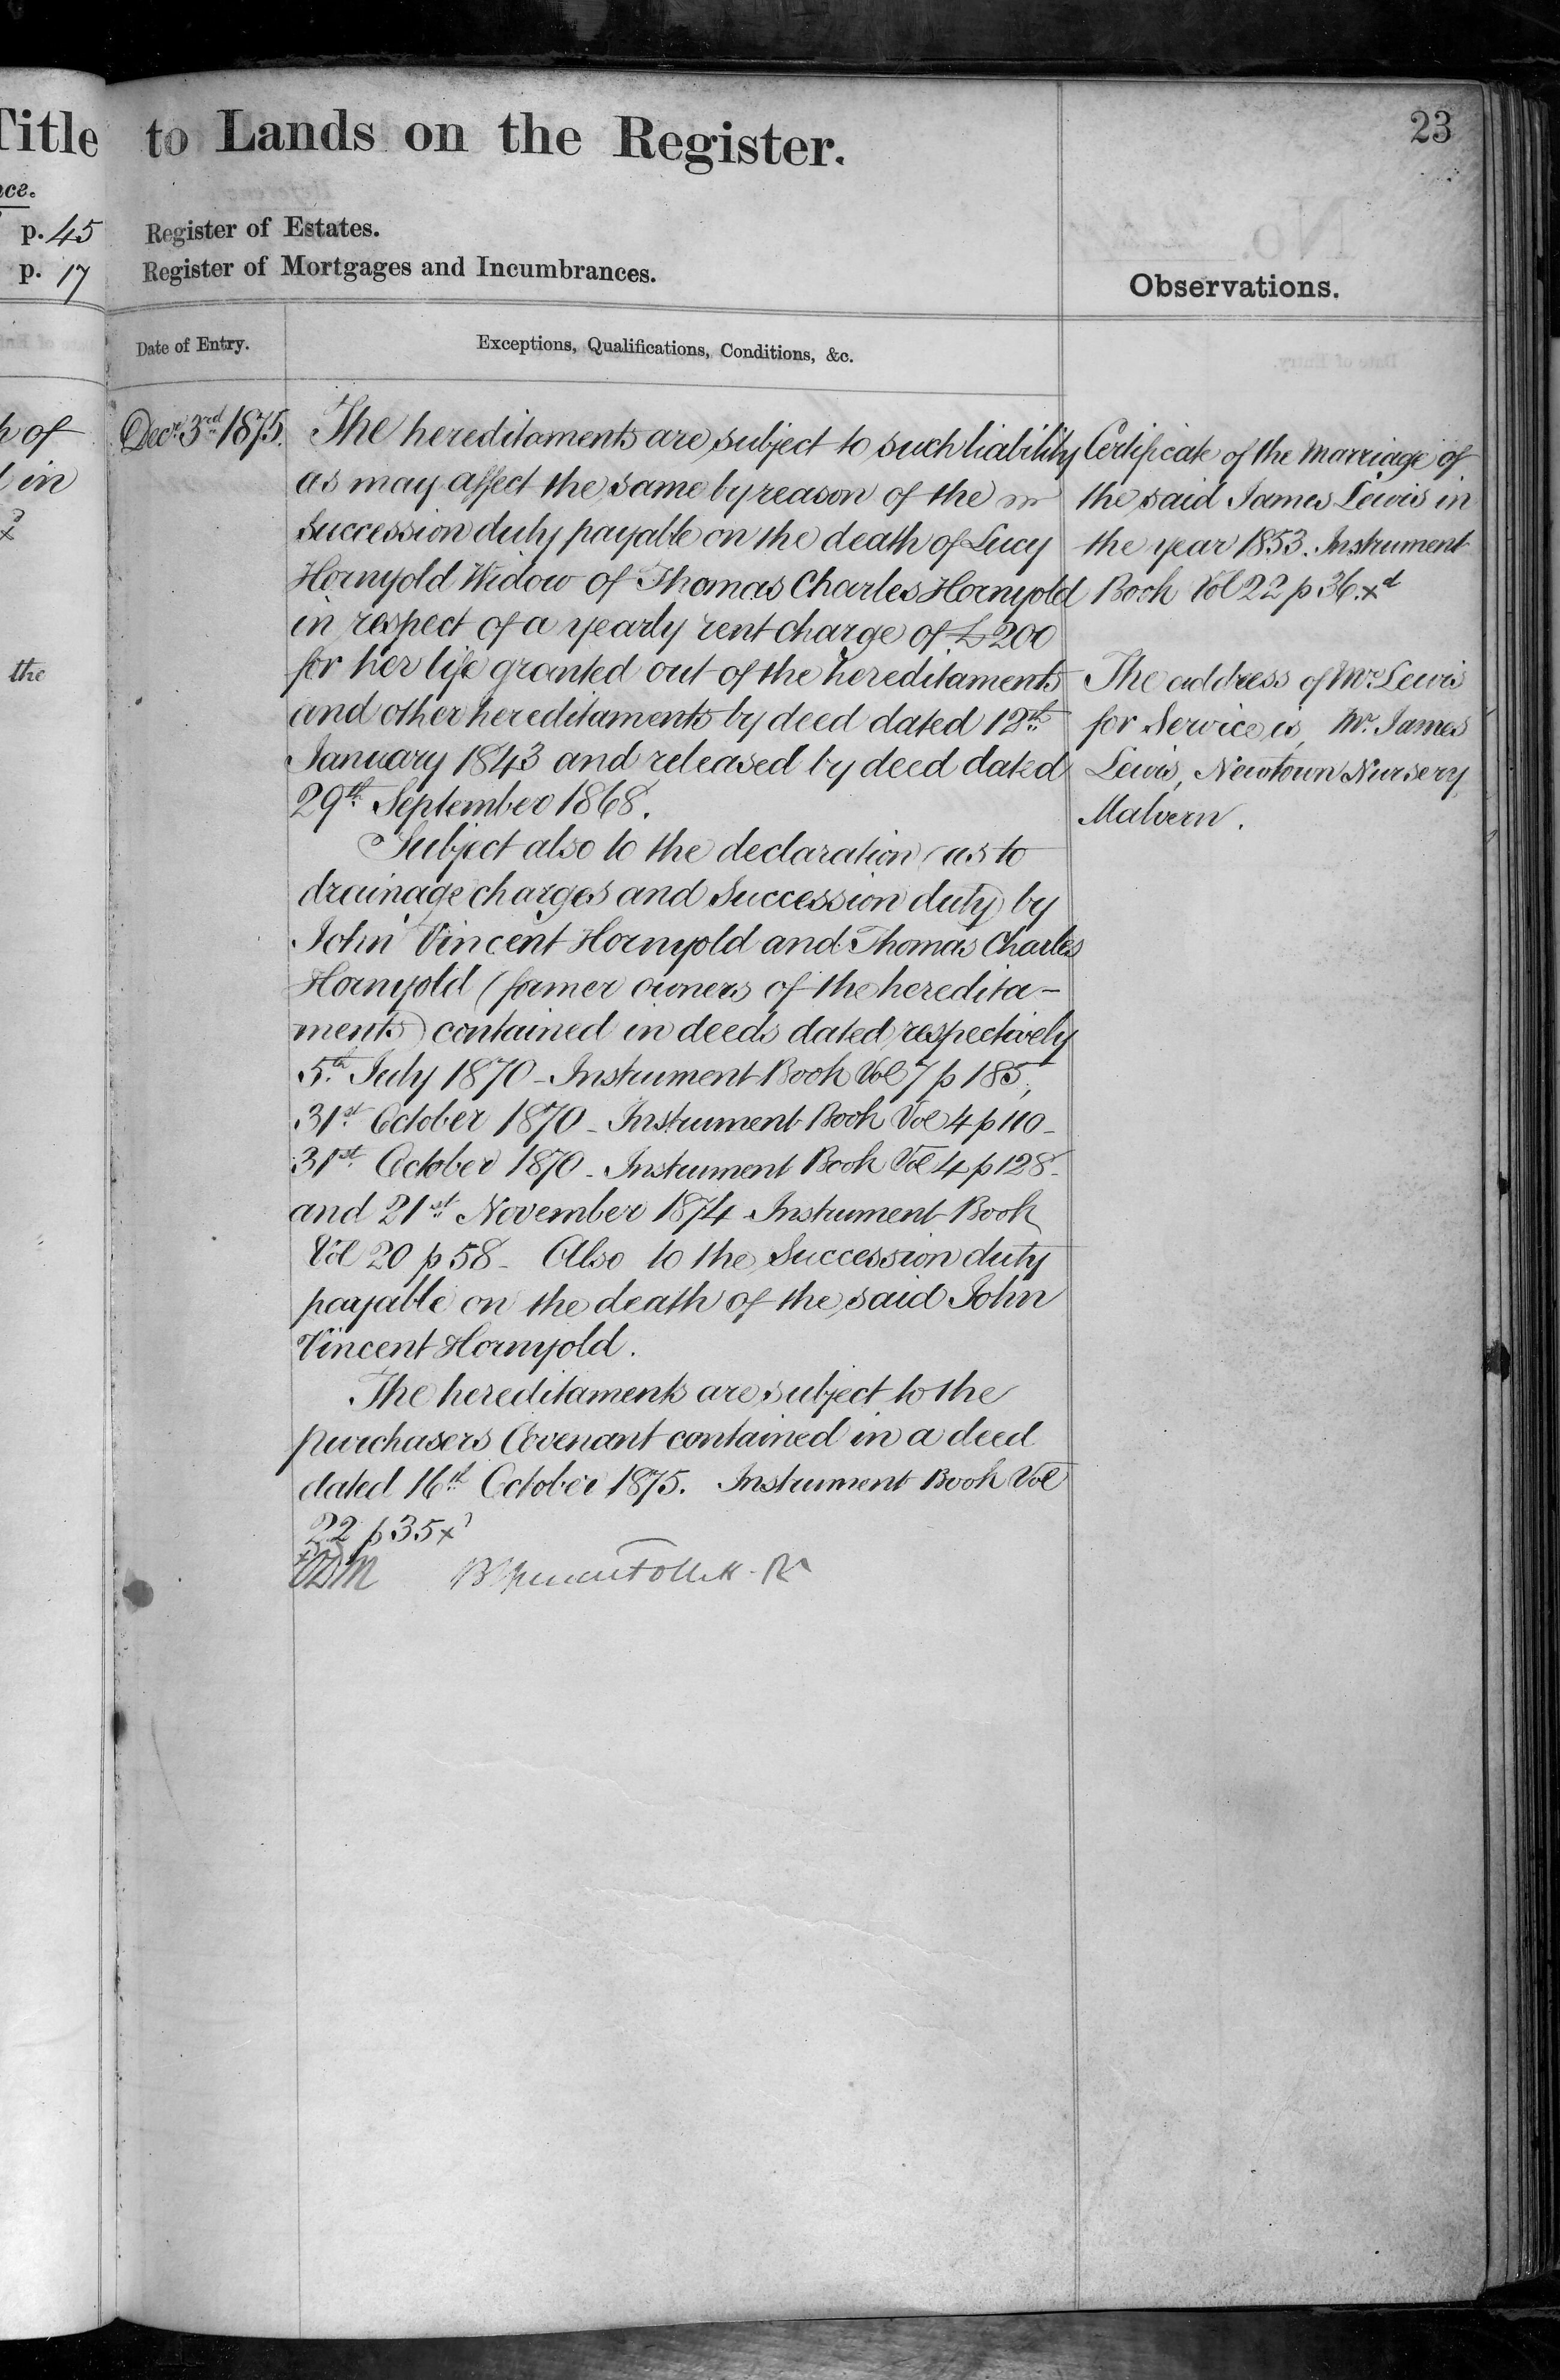 Title to Lands on the Register.
23
p. 45 Register of Estates.
p. 17 Register of Mortgages and Incumbrances.
Observations.
Date of Entry.
Exceptions, Qualifications, Conditions, &c.
of
in
the
Decr. 3rd 1875.
The hereditaments are subject to such liability
as may affect the same by reason of the
Succession duty payable on the death of Lucy
Hornyold Widow of Thomas Charles Hornyold
in respect of a yearly rent charge of £200
for her life granted out of the hereditaments
and other hereditaments by deed dated 12th
January 1843 and released by deed dated
29th September 1868.
Subject also to the declaration (as to
drainage charges and Succession duty) by
John Vincent Hornyold and Thomas Charles
Hornyold (former owners of the heredita-
ments) contained in deeds dated respectively
5th July 1870 - Instrument Book Vol 7 p 185,
31st October 1870 - Instrument Book Vol 4 p 110 -
31st October 1870 - Instrument Book Vol 4 p 128 -
and 21st November 1874 Instrument Book
Vol 20 p 58 - Also to the Succession duty
payable on the death of the said John
Vincent Hornyold.
The hereditaments are subject to the
purchasers Covenant contained in a deed
dated 16th October 1875. Instrument Book Vol
22 p 35 x
Certificate of the Marriage of
the said James Lewis in
the year 1853. Instrument
Book Vol 22 p 36. xd
The address of Mr. Lewis
for Service is, Mr. James
Lewis, Newtown Nursery
Malvern.